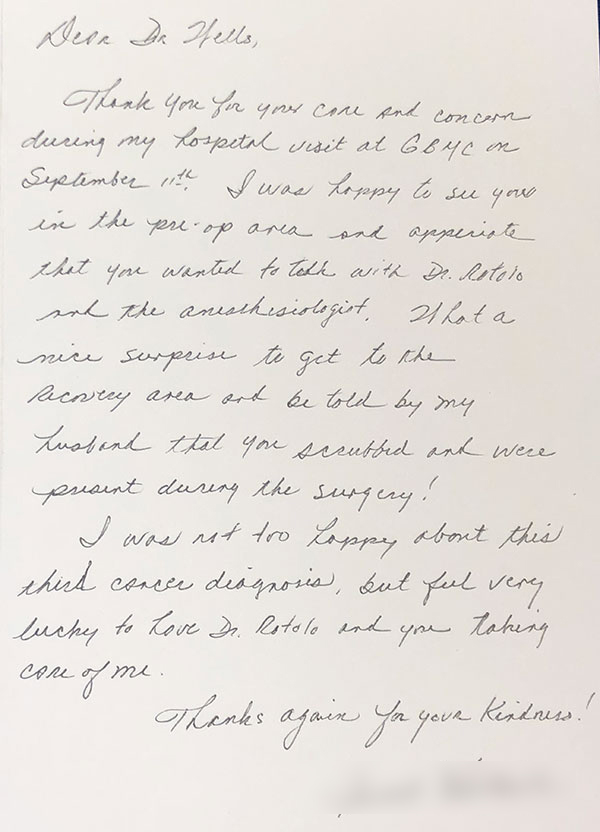 Dear Dr Wells,
Thank you for your care and concern
during my hospital visit at GBMC on
September 11th. I was happy to see you
in the pre-op area and appeciate
that you wanted to talk with Dr. Rotolo
and the anesthisiologist. What a
nice surprise to get to the
recovery area and be told by my
husband that you scrubbed and were
present during the surgery!
I was not too happy about this
third cancer diagnosis, but feel very
lucky to have Dr. Rotolo and you taking
care of me.
Thanks again for your kindness!